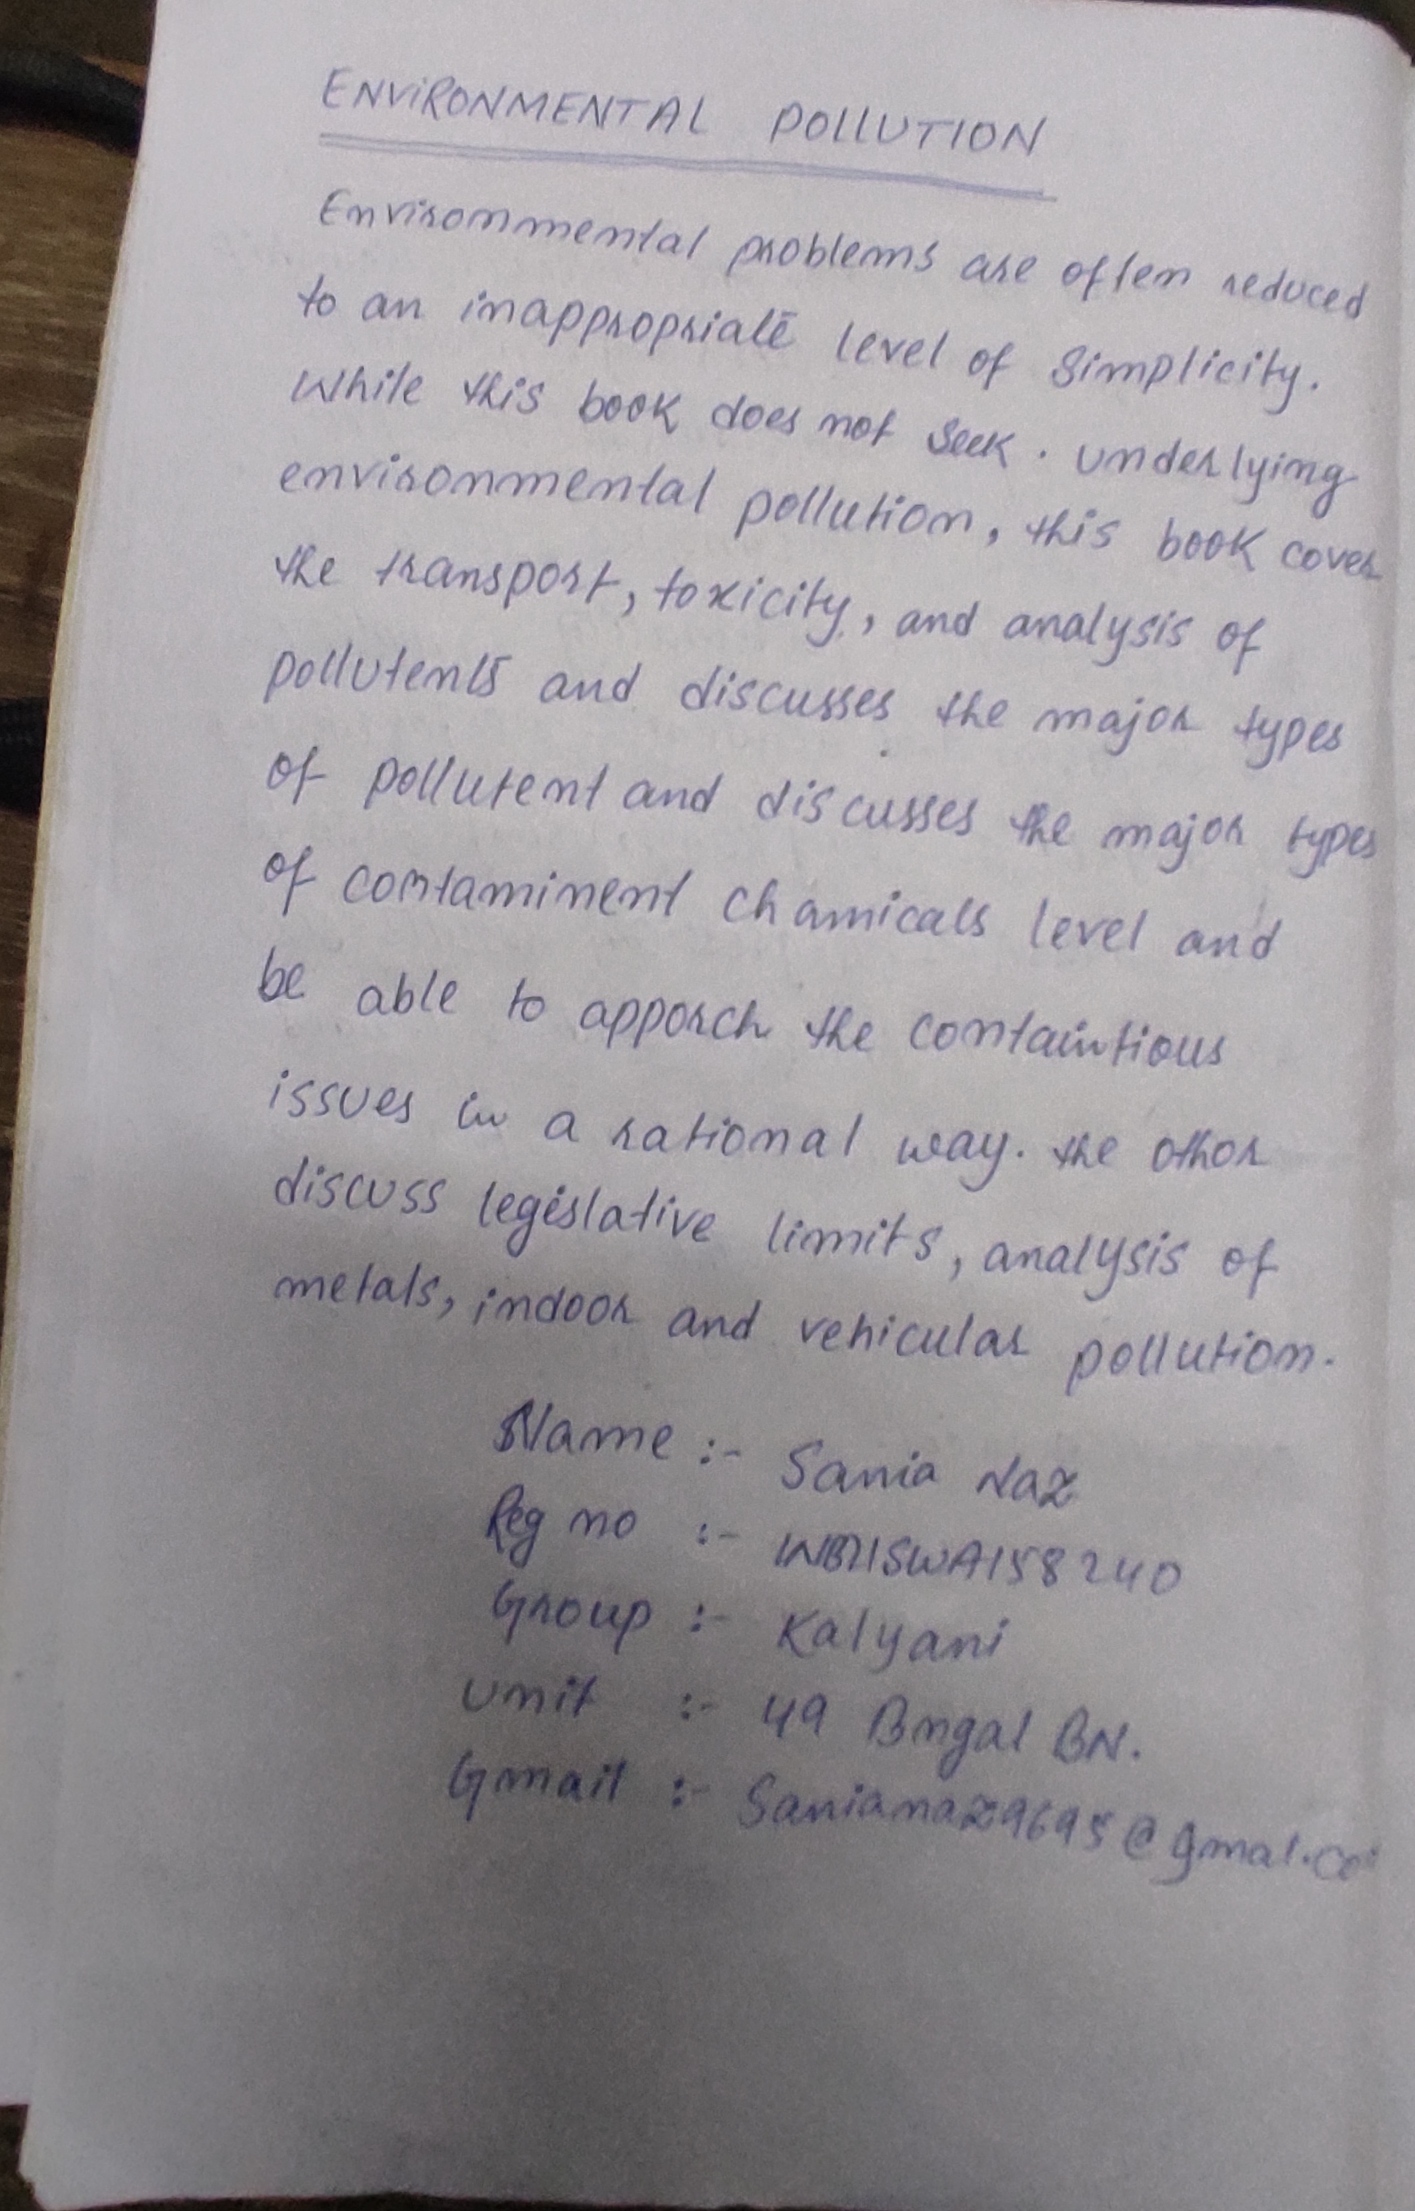 ENVIRONMENTAL POLLUTION
Environmental problems are often reduced
to an inappropriate level of Simplicity.
While this book does not Seek. underlying
environmental pollution, this book cover
the transport, toxicity, and analysis of
pollutents and discusses the major types
of pollutent and discusses the major types
of contaminent chamicals level and
be able to apporch the containtious
issues in a rational way. the othor
discuss legislative limits, analysis of
metals, indoor and vehicular pollution.
Name :- Sania Naz
Reg no :-
Group :- Kalyani
Unit :- 49 Bngal BN.
Gmail :- Sanianaz9695@gmal.co